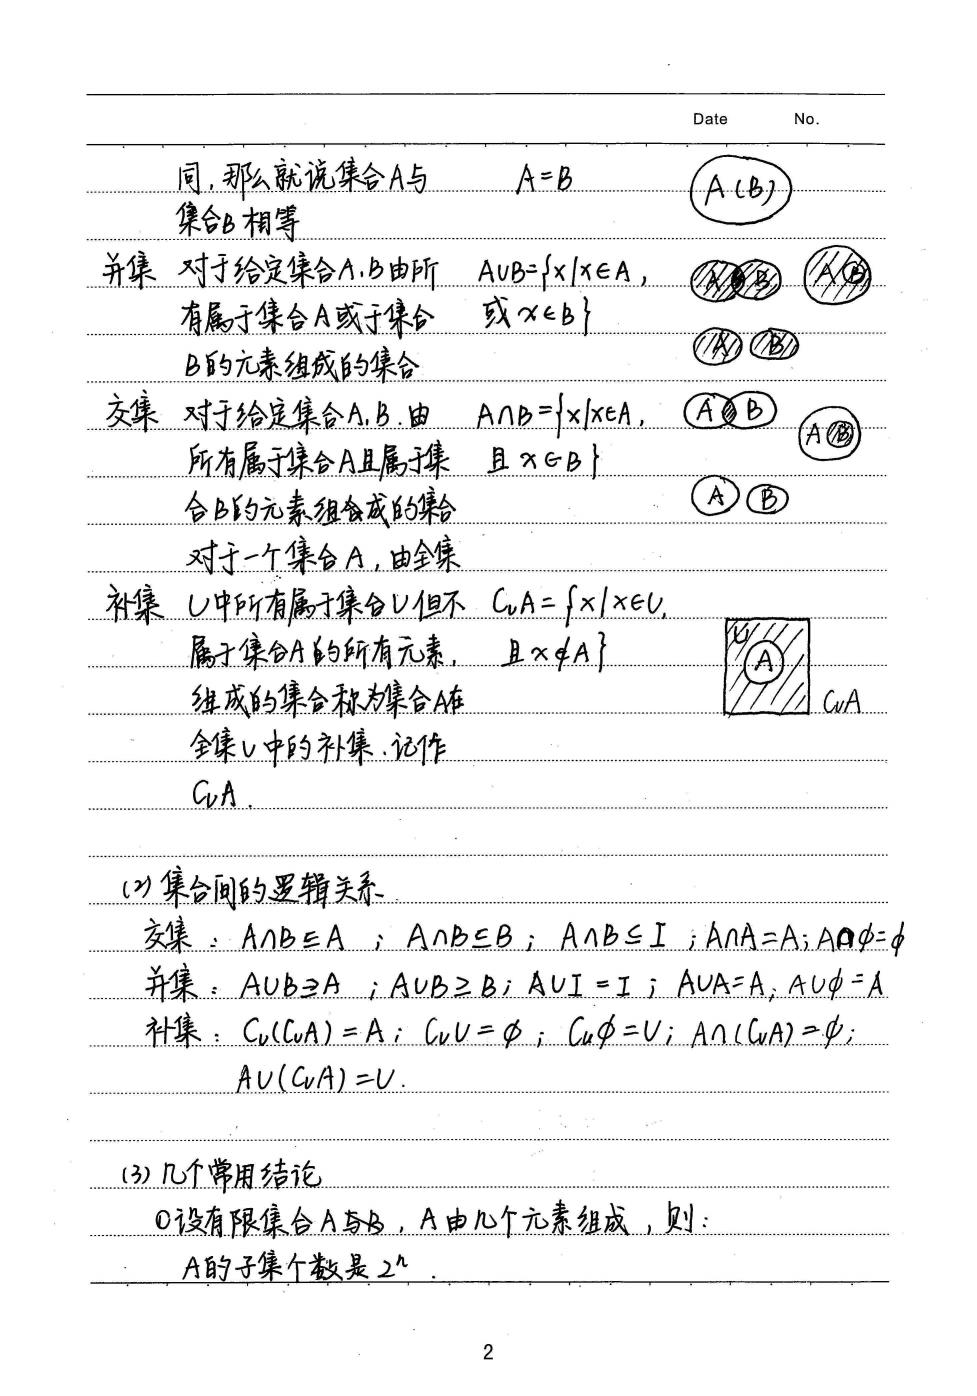 Date No.
同,那么就说集合A与 A=B A(B)
集合B相等
并集 对于给定集合A,B由所 A∪B={x|x∈A, A B A B
有属于集合A或于集合 或x∈B}
B的元素组成的集合 A B
交集 对于给定集合A,B.由 A∩B={x|x∈A, A B
所有属于集合A且属于集 且x∈B} A B
合B的元素组合成的集合 A B
对于一个集合A,由全集
补集 U中所有属于集合U但不 C∪A={x|x∈U, U
属于集合A的所有元素, 且x∉A} A
组成的集合称为集合A在 C∪A
全集U中的补集.记作
C∪A.
(2)集合间的逻辑关系
交集:A∩B⊆A;A∩B⊆B;A∩B⊆I;A∩A=A;A∩φ=φ
并集:A∪B⊇A;A∪B⊇B;A∪I=I;A∪A=A;A∪φ=A
补集:C∪(C∪A)=A;C∪U=φ;Cuφ=U;A∩(C∪A)=φ;
A∪(C∪A)=U.
(3)几个常用结论
①设有限集合A与B,A由几个元素组成,则:
A的子集个数是2ⁿ.
2